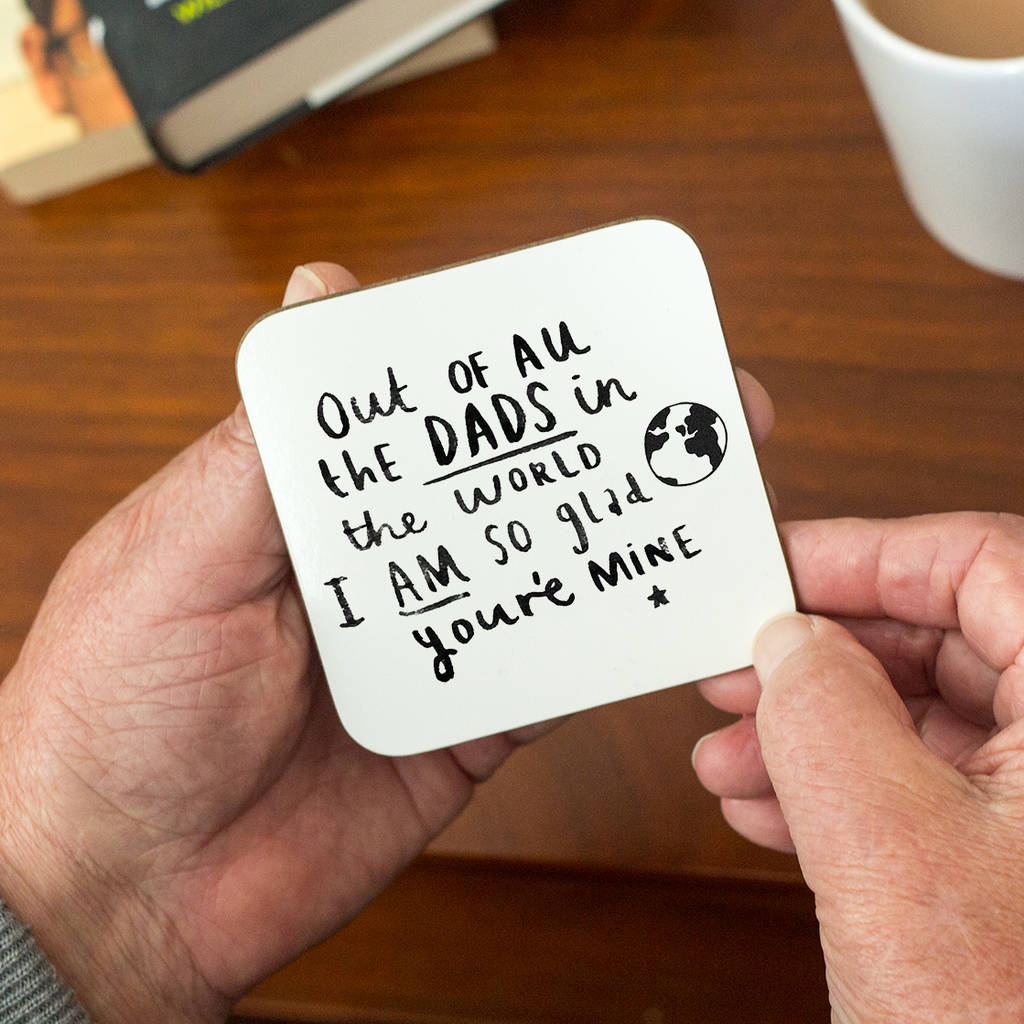 Out OF ALL
thE DADS in
the WORLD
I AM SO glad
you'rE MINE